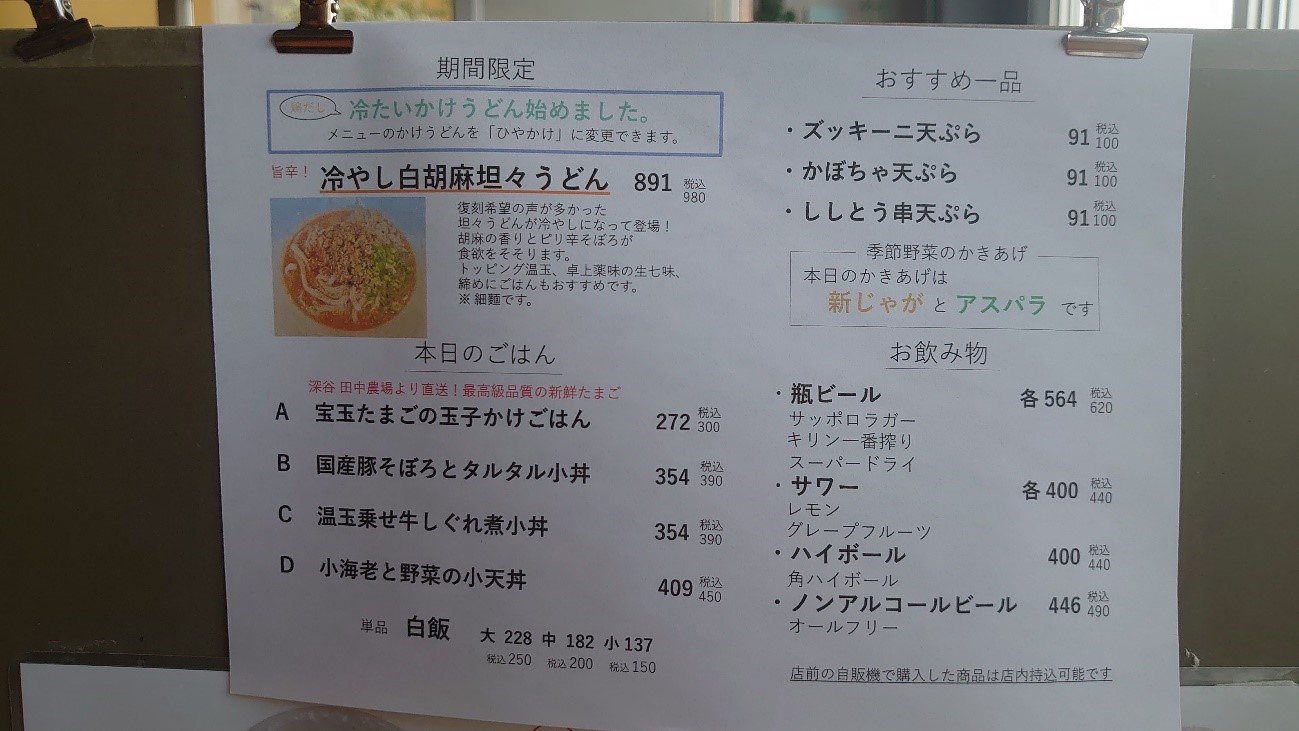 期間限定
鶏だし
冷たいかけうどん始めました。
メニューのかけうどんを「ひやかけ」に変更できます。
旨辛！ 冷やし白胡麻坦々うどん 891 税込 980
復刻希望の声が多かった
坦々うどんが冷やしになって登場！
胡麻の香りとピリ辛そぼろが
食欲をそそります。
トッピング温玉、卓上薬味の生七味、
締めにごはんもおすすめです。
※ 細麺です。
本日のごはん
深谷 田中農場より直送！最高級品質の新鮮たまご
A 宝玉たまごの玉子かけごはん 272 税込 300
B 国産豚そぼろとタルタル小丼 354 税込 390
C 温玉乗せ牛しぐれ煮小丼 354 税込 390
D 小海老と野菜の小天丼 409 税込 450
単品 白飯 大 228 中 182 小 137
税込250 税込200 税込150
おすすめ一品
・ズッキーニ天ぷら 91 税込 100
・かぼちゃ天ぷら 91 税込 100
・ししとう串天ぷら 91 税込 100
季節野菜のかきあげ
本日のかきあげは
新じゃが と アスパラ です
お飲み物
・瓶ビール 各 564 税込 620
サッポロラガー
キリン一番搾り
スーパードライ
・サワー 各 400 税込 440
レモン
グレープフルーツ
・ハイボール 400 税込 440
角ハイボール
・ノンアルコールビール 446 税込 490
オールフリー
店前の自販機で購入した商品は店内持込可能です